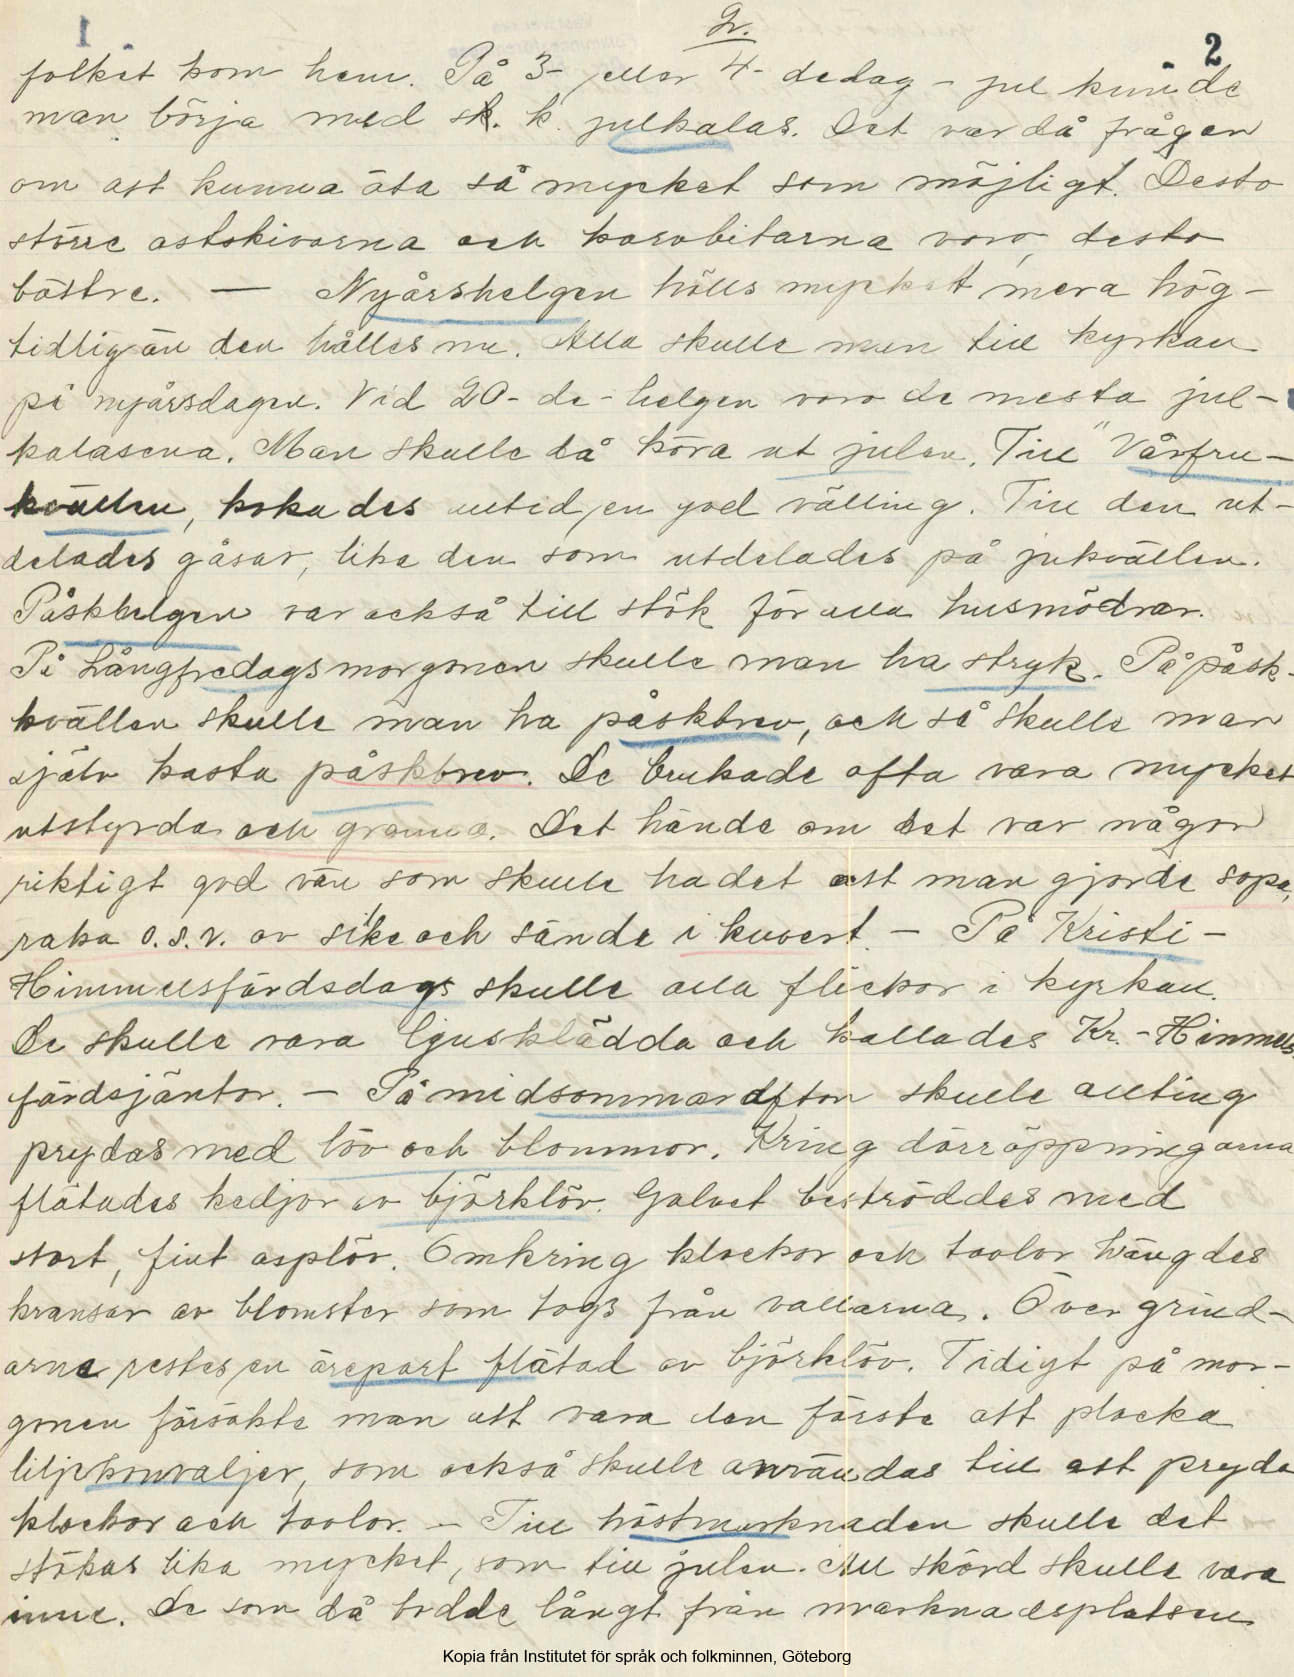 1
2.
2
folket kom hem. På 3- eller 4-dedag-jul kunde
man börja med s.k. julkalas. Det var då frågan
om att kunna äta så mycket som möjligt. Desto
större ostskivorna och korvbitarna voro, desto
bättre. — Nyårshelgen hölls mycket mera hög-
tidlig än den hålles nu. Alla skulle man till kyrkan
på nyårsdagen. Vid 20-de-helgen voro de mesta jul-
kalasena. Man skulle då köra ut julen. Till "Vårfru-
kvällen, kokades alltid en god välling. Till den ut-
delades gåsar, lika den som utdelades på julkvällen.
Påskhelgen var också till stök för alla husmödrar.
På Långfredagsmorgonen skulle man ha stryk. På påsk-
kvällen skulle man ha påskbrev, och så skulle man
själv kasta påskbrev. De brukade ofta vara mycket
utstyrda och granna. Det hände om det var någon
riktigt god vän som skulle ha det att man gjorde sopa,
raka o.s.v. av och sände i kuvert. — På Kristi-
Himmelsfärdsdags skulle alla flickor i kyrkan.
De skulle vara ljusklädda och kallades Kr.-Himmels-
färdsjäntor. — På midsommarafton skulle allting
prydas med löv och blommor. Kring dörröppningarna
flätades kedjor av björklöv. Golvet beströddes med
stort, fint asplöv. Omkring klockor och tavlor hängdes
kransar av blomster som togs från vallarna. Över grind-
arna restes en äreport flätad av björklöv. Tidigt på mor-
gonen försökte man att vara den förste att plocka
liljekonvaljer, som också skulle användas till att pryda
klockor och tavlor. — Till höstmarknaden skulle det
stökas lika mycket, som till julen. All skörd skulle vara
inne. De som då bodde långt från marknadsplatsen
Kopia från Institutet för språk och folkminnen, Göteborg